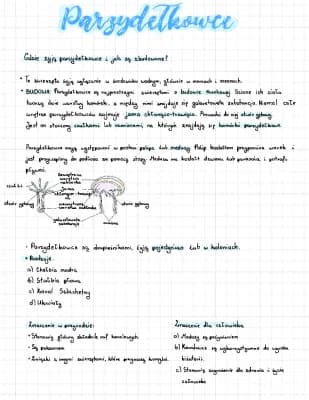 Parzydełkowce
Gdzie żyją parzydełkowce i jak są zbudowane?
• Te zwierzęta żyją wyłącznie w środowisku wodnym, głównie w morzach i oceanach.
• BUDOWA: Parzydełkowce są najprostszymi zwierzętami o budowie tkankowej. Ściana ich ciała
tworzą dwie warstwy komórek, a między nimi znajduje się galaretowata substancja. Niemal całe
wnętrze parzydełkowców zajmuje jama chłonąco-trawiąca. Prowadzi do niej otwór gębowy.
Jest on otoczony czułkami lub ramionami, na których znajdują się komórki parzydełkowe.
Parzydełkowce mogą występować w postaci polipa lub meduzy. Polip kształtem przypomina worek i
jest przyczepiony do podłoża za pomocą stopy. Meduza ma kształt dzwonu lub parasola, i potrafi
pływać.
czułki
otwór gębowy
zewnętrzna warstwa nabłonka
jama chłonąco-trawiąca
wewnętrzna warstwa nabłonka
galaretowata substancja
otwór gębowy
ramiona
• Parzydełkowce są drapieżnikami, żyją pojedynczo lub w koloniach.
• Rodzaje
a) Chełbia modra
b) Stułbia płowa
c) Koral Szlachetny
d) Ukwiały
Znaczenie w przyrodzie:
• Stanowią główny składnik raf koralowych
• Są pokarmem
• Związki z innymi zwierzętami, które przynoszą korzyści.
Znaczenie dla człowieka
a) Meduzy są pożywieniem
b) Koralowce są wykorzystywane do wyrobu
biżuterii.
c) Stanowią zagrożenie dla zdrowia i życia
człowieka